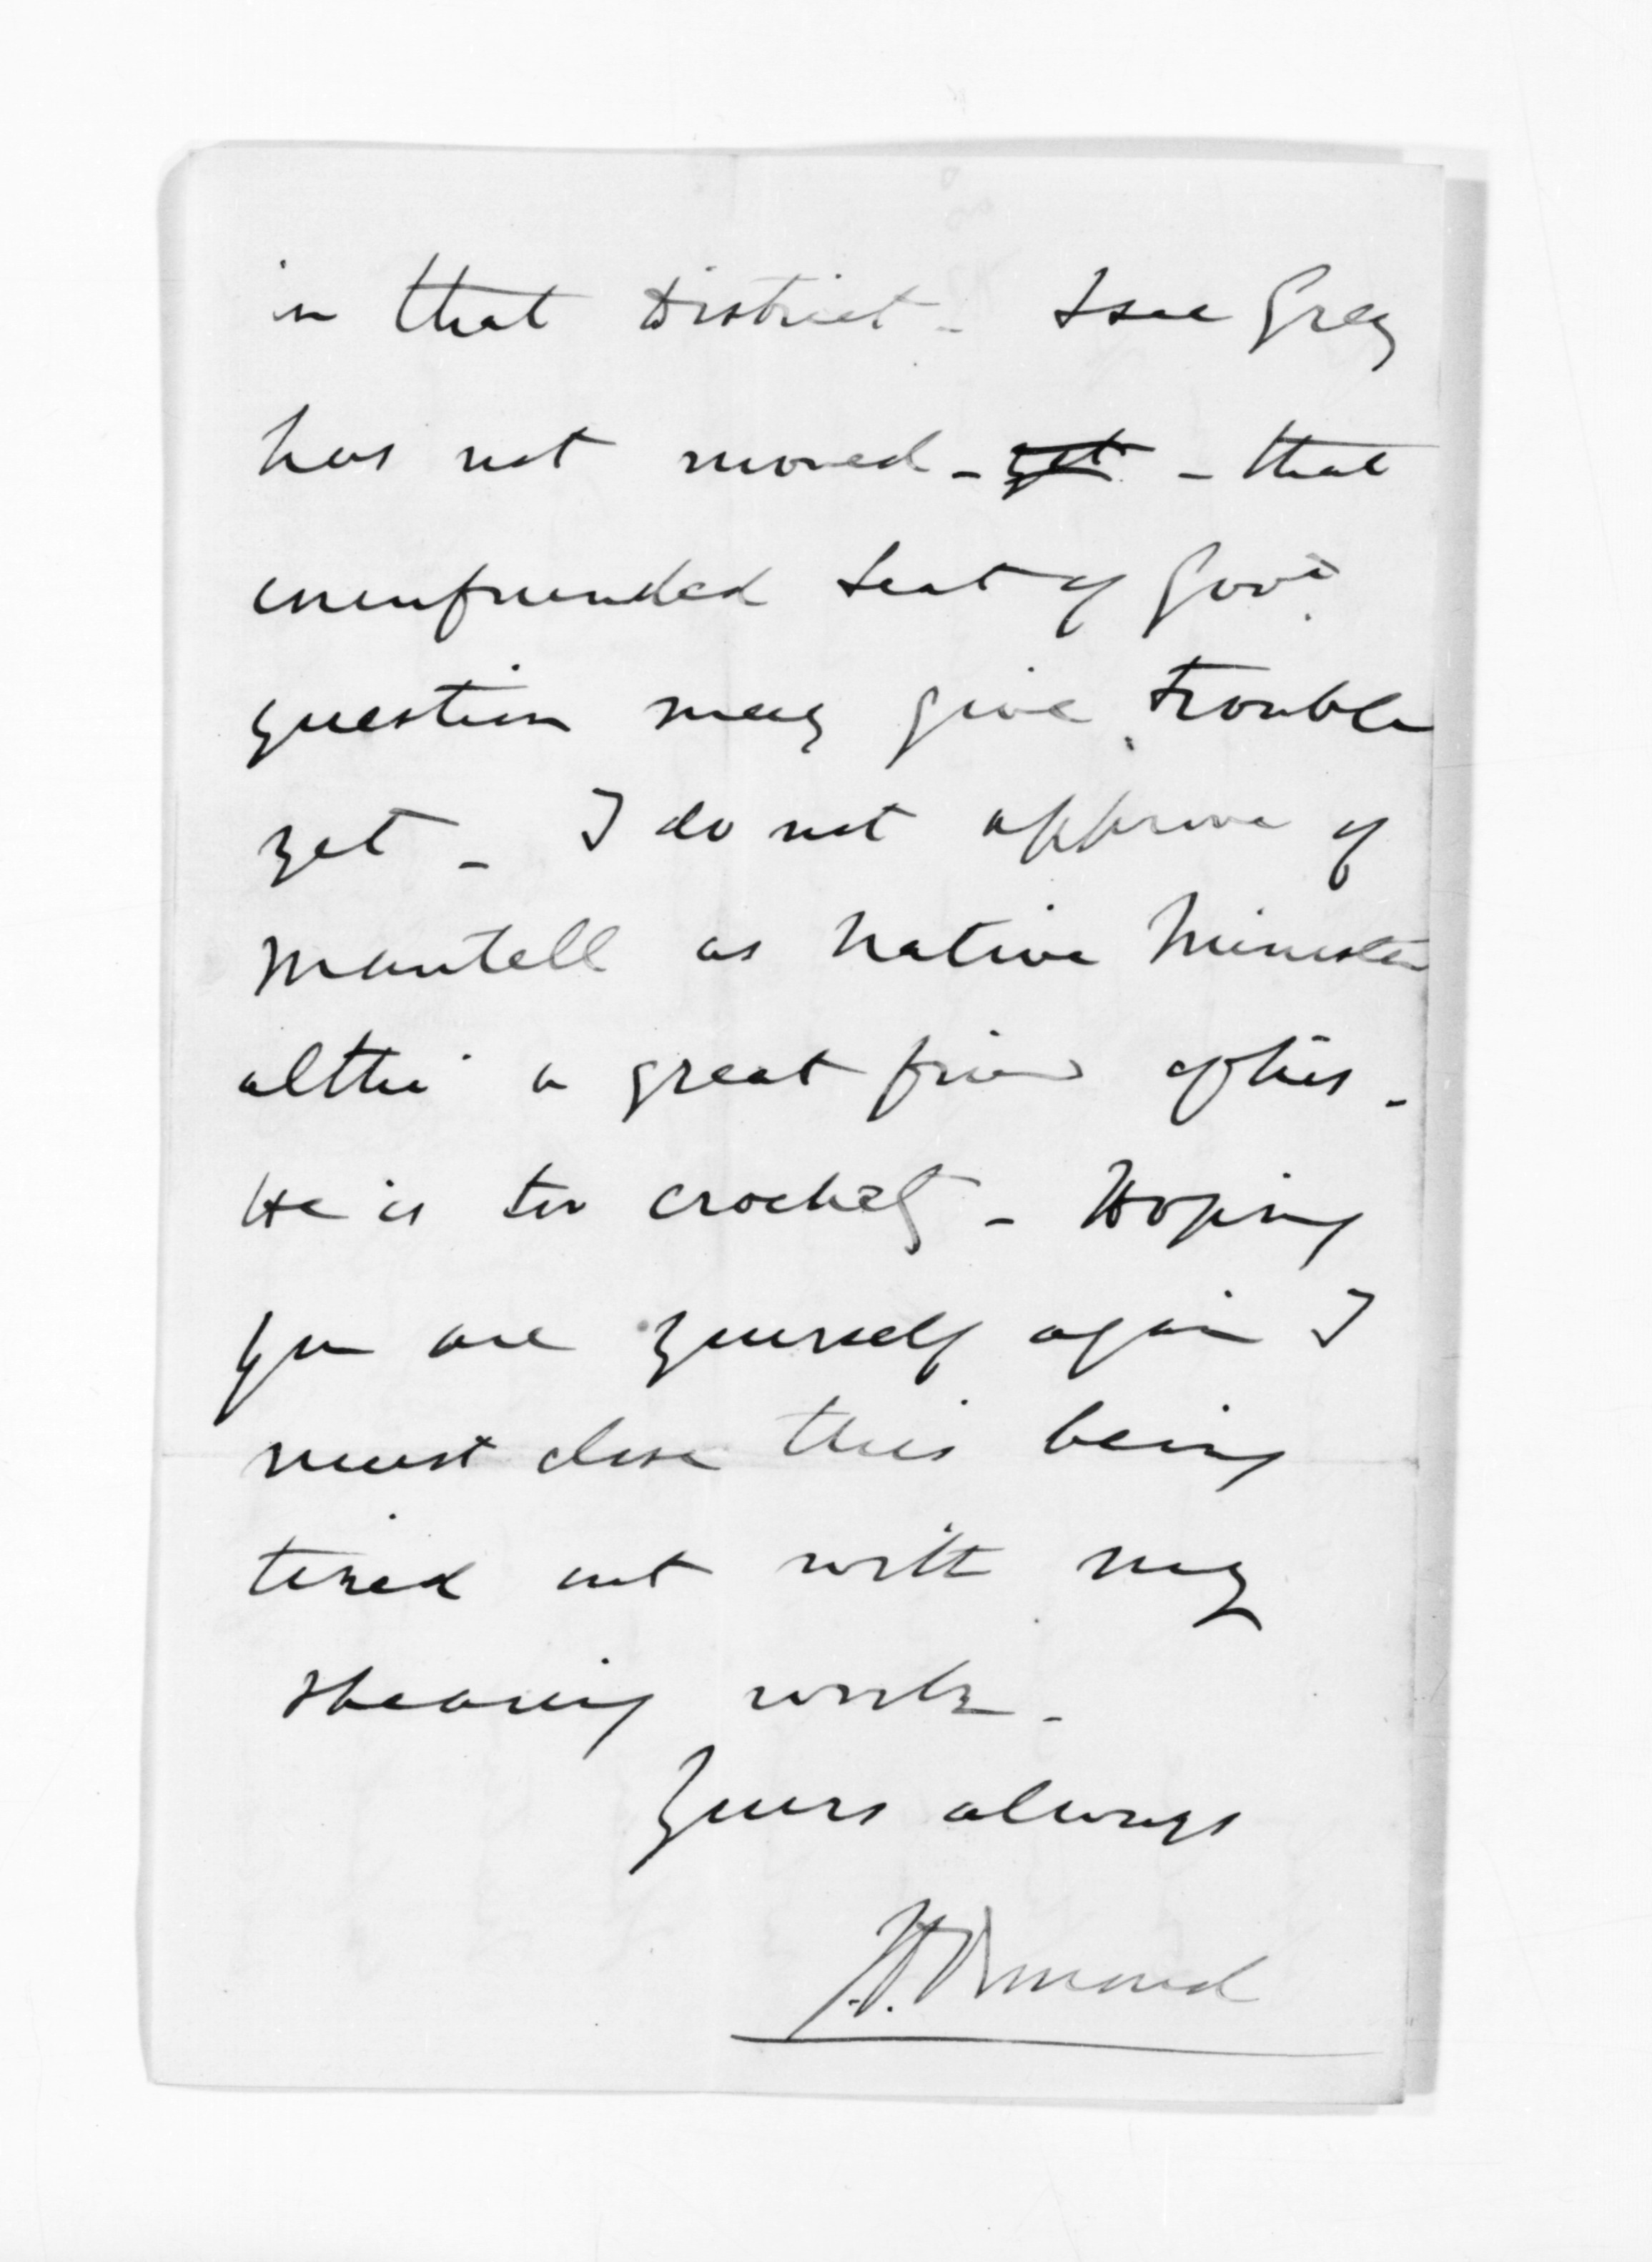 in that District - I see Grey
has not moved - yet - that
confounded Seat of Govt.
question may give trouble
yet - I do not approve of
Mantell as Native Minister
altho' a great friend of his -
He is too crochety - Hoping
you are yourself again I
must close this being
tired out with my
shearing work -
Yours always
J.D. Ormond